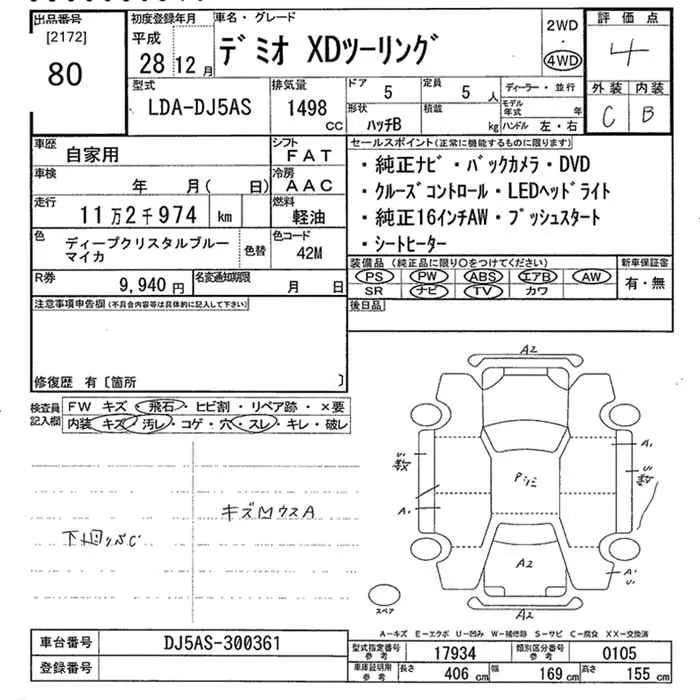 出品番号 [2172] 80
初度登録年月 平成 28 12 月
車名・グレード デミオ XDツーリング
2WD・4WD
評価点 4
外装 C 内装 B
型式 LDA-DJ5AS
排気量 1498 CC
ドア 5
定員 5 人
形状 ハッチB
積載 kg
ディーラー・並行
モデル年式 年
ハンドル 左・右
車歴 自家用
シフト FAT
車検 年 月( 日)
冷房 AAC
走行 11万2千974 km
燃料 軽油
色 ディープクリスタルブルー
マイカ
色替
色コード 42M
R券 9,940 円
名変通知期限 月 日
セールスポイント(正常に機能するものに限ります)
・純正ナビ・バックカメラ・DVD
・クルーズコントロール・LEDヘッドライト
・純正16インチAW・プッシュスタート
・シートヒーター
装備品(純正品に限り○をつけてください)
新車保証書 有・無
PS PW ABS エアB AW
SR ナビ TV カワ
後日品
注意事項申告欄(不具合内容等は具体的に記入して下さい)
修復歴 有〔箇所 〕
検査員記入欄
FW キズ・飛石・ヒビ割・リペア跡・×要
内装 キズ・汚レ・コゲ・穴・スレ・キレ・破レ
A2
A1
U1
数
U1
数
A2
A1
U1
A2
スペア
A−キズ E−エクボ U−凹み W−補修跡 S−サビ C−腐食 XX−交換済
車台番号 DJ5AS-300361
登録番号
型式指定番号参考 17934
類別区分番号参考 0105
車庫証明用参考 長さ 406 cm 幅 169 cm 高さ 155 cm